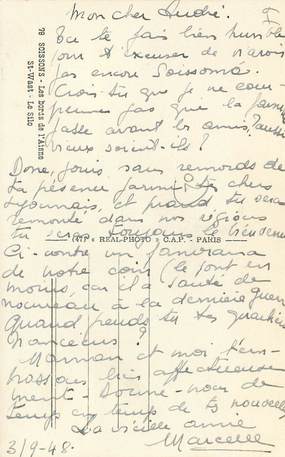 Mon cher André. I
Tu te fais bien humble
pour t'excuser de n'avoir
pas encore Soissonné.
Crois-tu que je ne com-
prenne pas que la famille
passe avant les amis, aussi
vieux soient-ils?
Donc, jouis sans remords de
ta présence parmi tes chers
Lyonnais, et quand tu seras
remonté dans nos régions
tu seras toujours le bienvenu
Ci-contre un panorama
de notre coin (le pont en
moins, car il a sauté de
nouveau à la dernière guerre
Quand prends tu tes quartiers
Nanceens?
Maman et moi t'em-
brassons bien affectueuse
ment. Donne-nous de
temps en temps de tes nouvelles
Ta vieille amie
Marcelle
3/9-48.
76 SOISSONS - Les bords de l'Aisne
St-Waast - Le Silo
"REAL-PHOTO" C.A.P. - PARIS